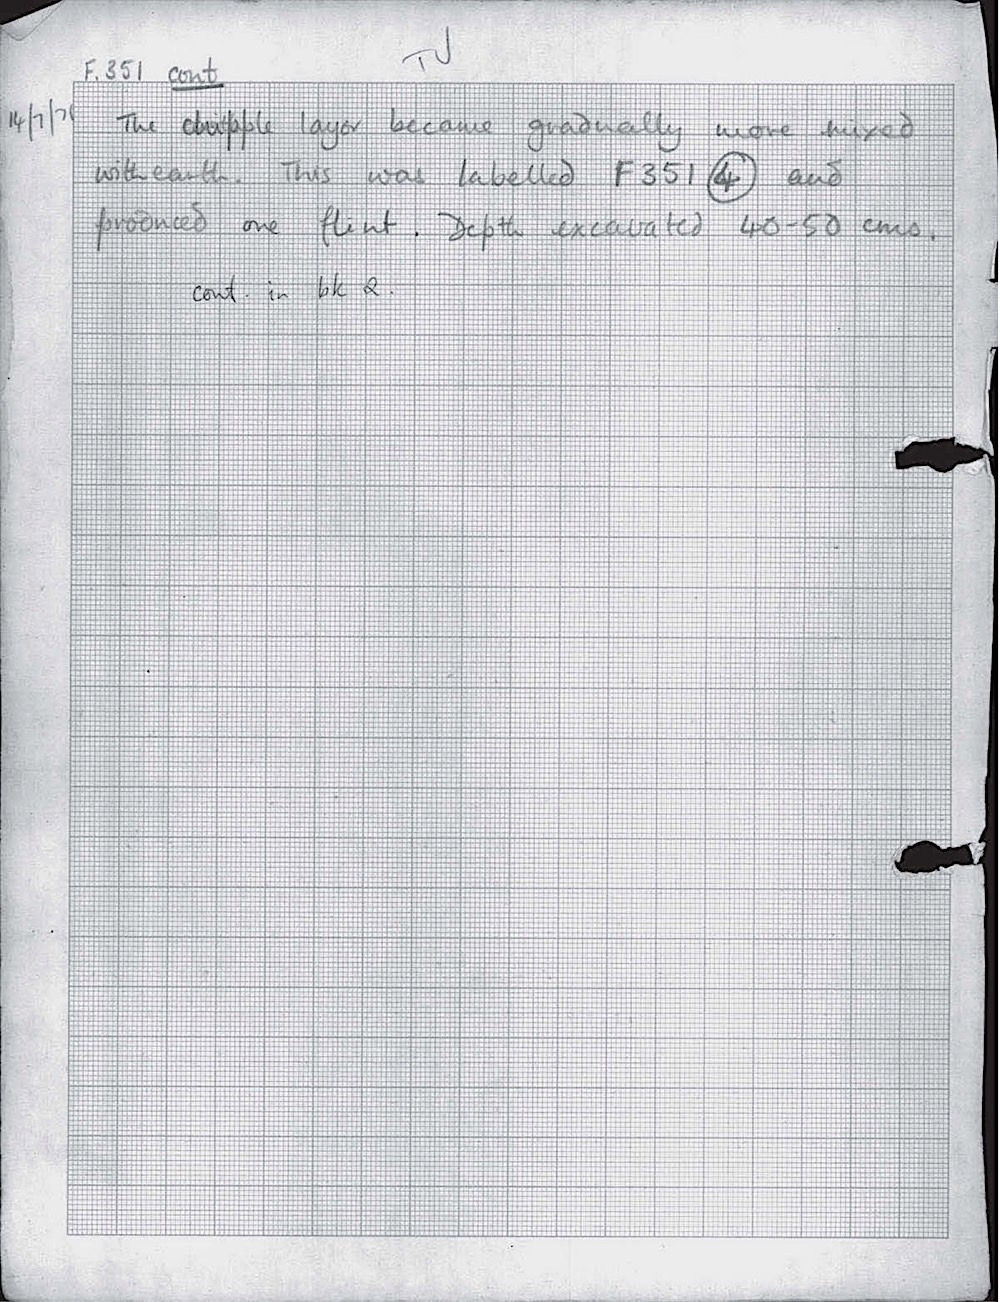 TJ
F.351 cont
The layer became gradually more mixed
with earth. This was labelled F351 ④ and
produced one flint. Depth excavated 40-50 cms.
cont. in bk 2.